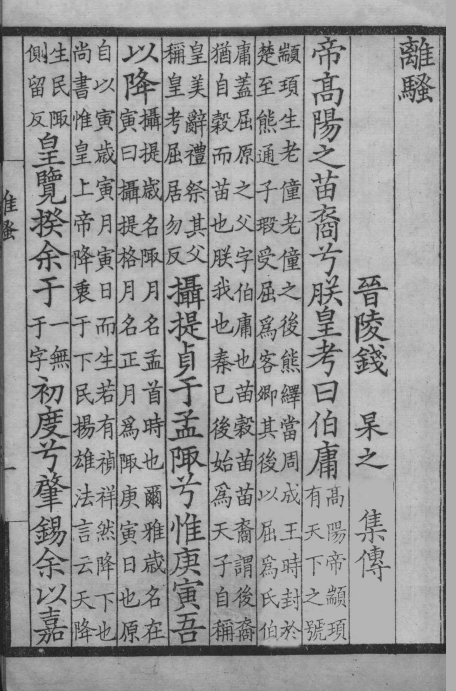 離騷
晉陵錢 杲之 集傳
帝髙陽之苗裔兮朕皇考曰伯庸髙陽帝顓頊
有天下之號
顓頊生老僮老僮之後熊繹當周成王時封於
楚至熊通子瑕受屈爲客卿其後以屈爲氏伯
庸蓋屈原之父字伯庸也苗穀苗苗裔謂後裔
猶自穀而苗也朕我也秦已後始爲天子自稱
皇美辭禮祭其父
稱皇考屈居勿反攝提貞于孟陬兮惟庚寅吾
以降攝提歲名陬月名孟首時也爾雅歲名在
寅曰攝提格月名正月爲陬庚寅日也原
自以寅歲寅月寅日而生若有禎祥然降下也
尚書惟皇上帝降衷于下民揚雄法言云天降
生民陬
側留反皇覽揆余于一無
于字初度兮肇錫余以嘉